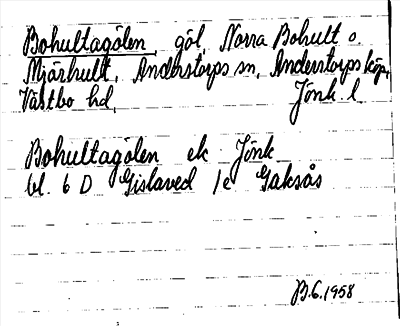 Bohultagölen, göl, Norra Bohult o.
Mjärhult, Anderstorps sn, Anderstorps köp,
Västbo hd, Jönk. l.
Bohultagölen ek Jönk
bl. 6 D Gislaved 1e Gaksås
B.6.1958